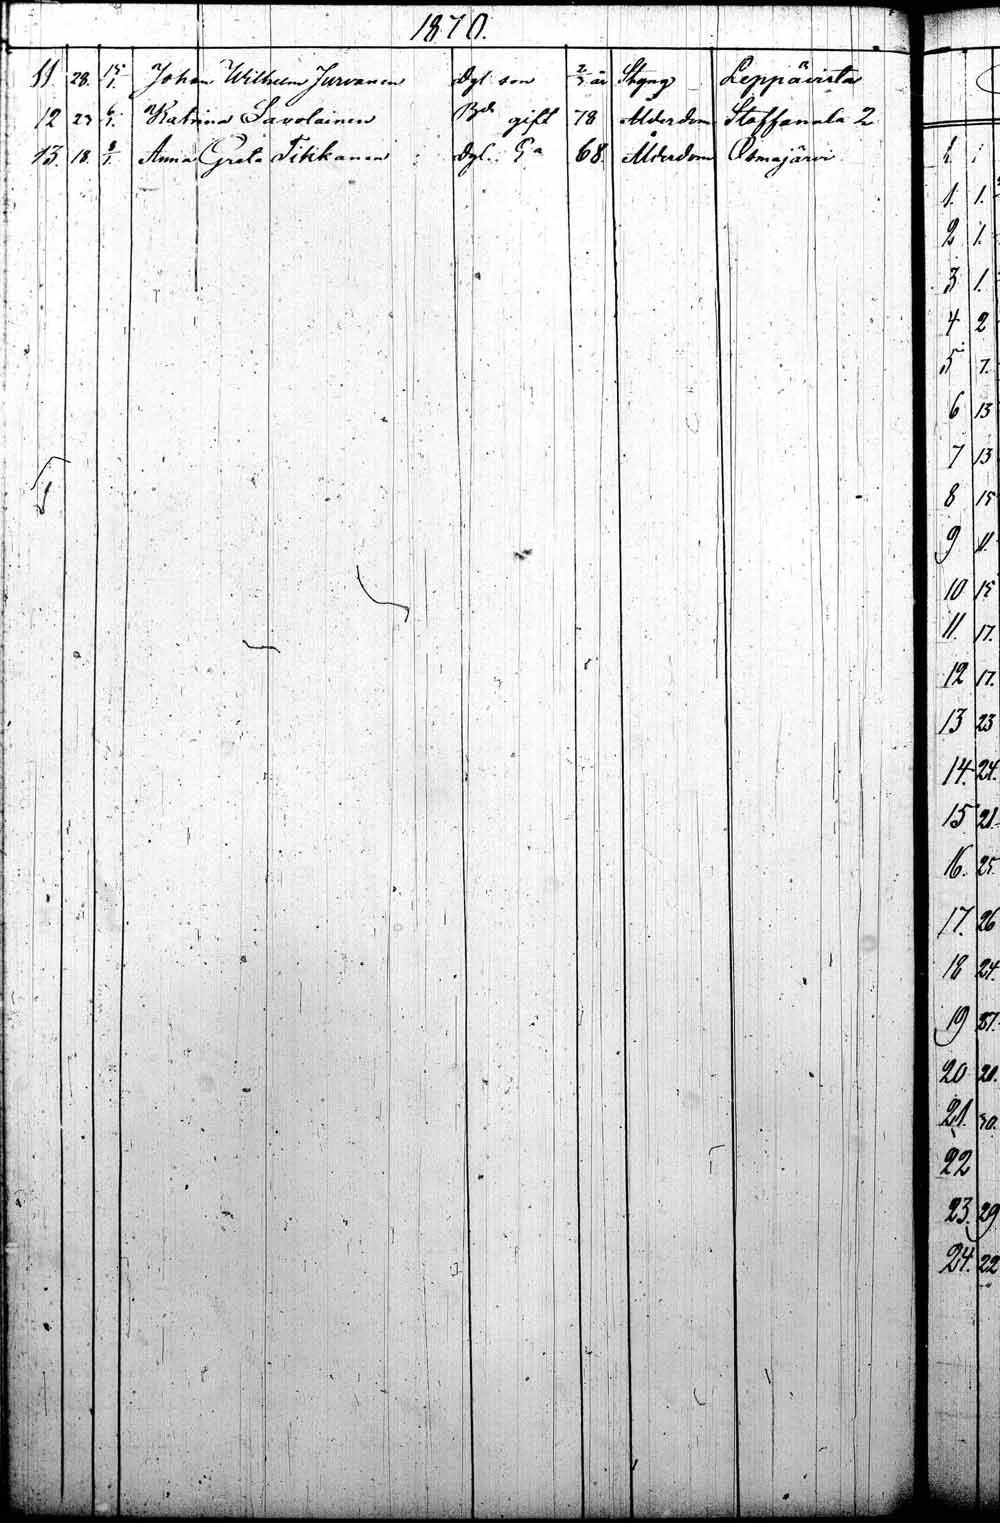 1870.
11 28. 15/1. Johan Wilhelm Jurvanen Dgl son 2/3 år Slagag Leppävirta
12 23 6/1. Katrina Savolainen Bds gift 78 Ålderdom Staffanala 2
13. 18. 9/1. Anna Greta Tikkanen Dgl. Ea 68. Ålderdom Osmajärvi
1. 1.
2 1.
3 1.
4 2
5 7.
6 13
7 13
8 15
9 11.
10 15
11. 17.
12 17.
13 23
14. 24.
15 21.
16. 25.
17. 26
18 24.
19 27.
20 20.
21. 30.
22
23. 29
24. 22